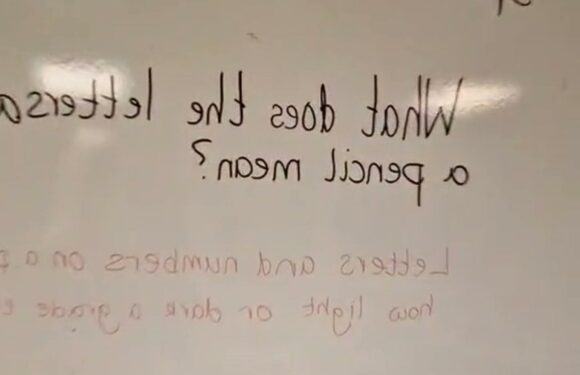 What does the letters
a pencil mean?
Letters and numbers on a
how light or dark a grade